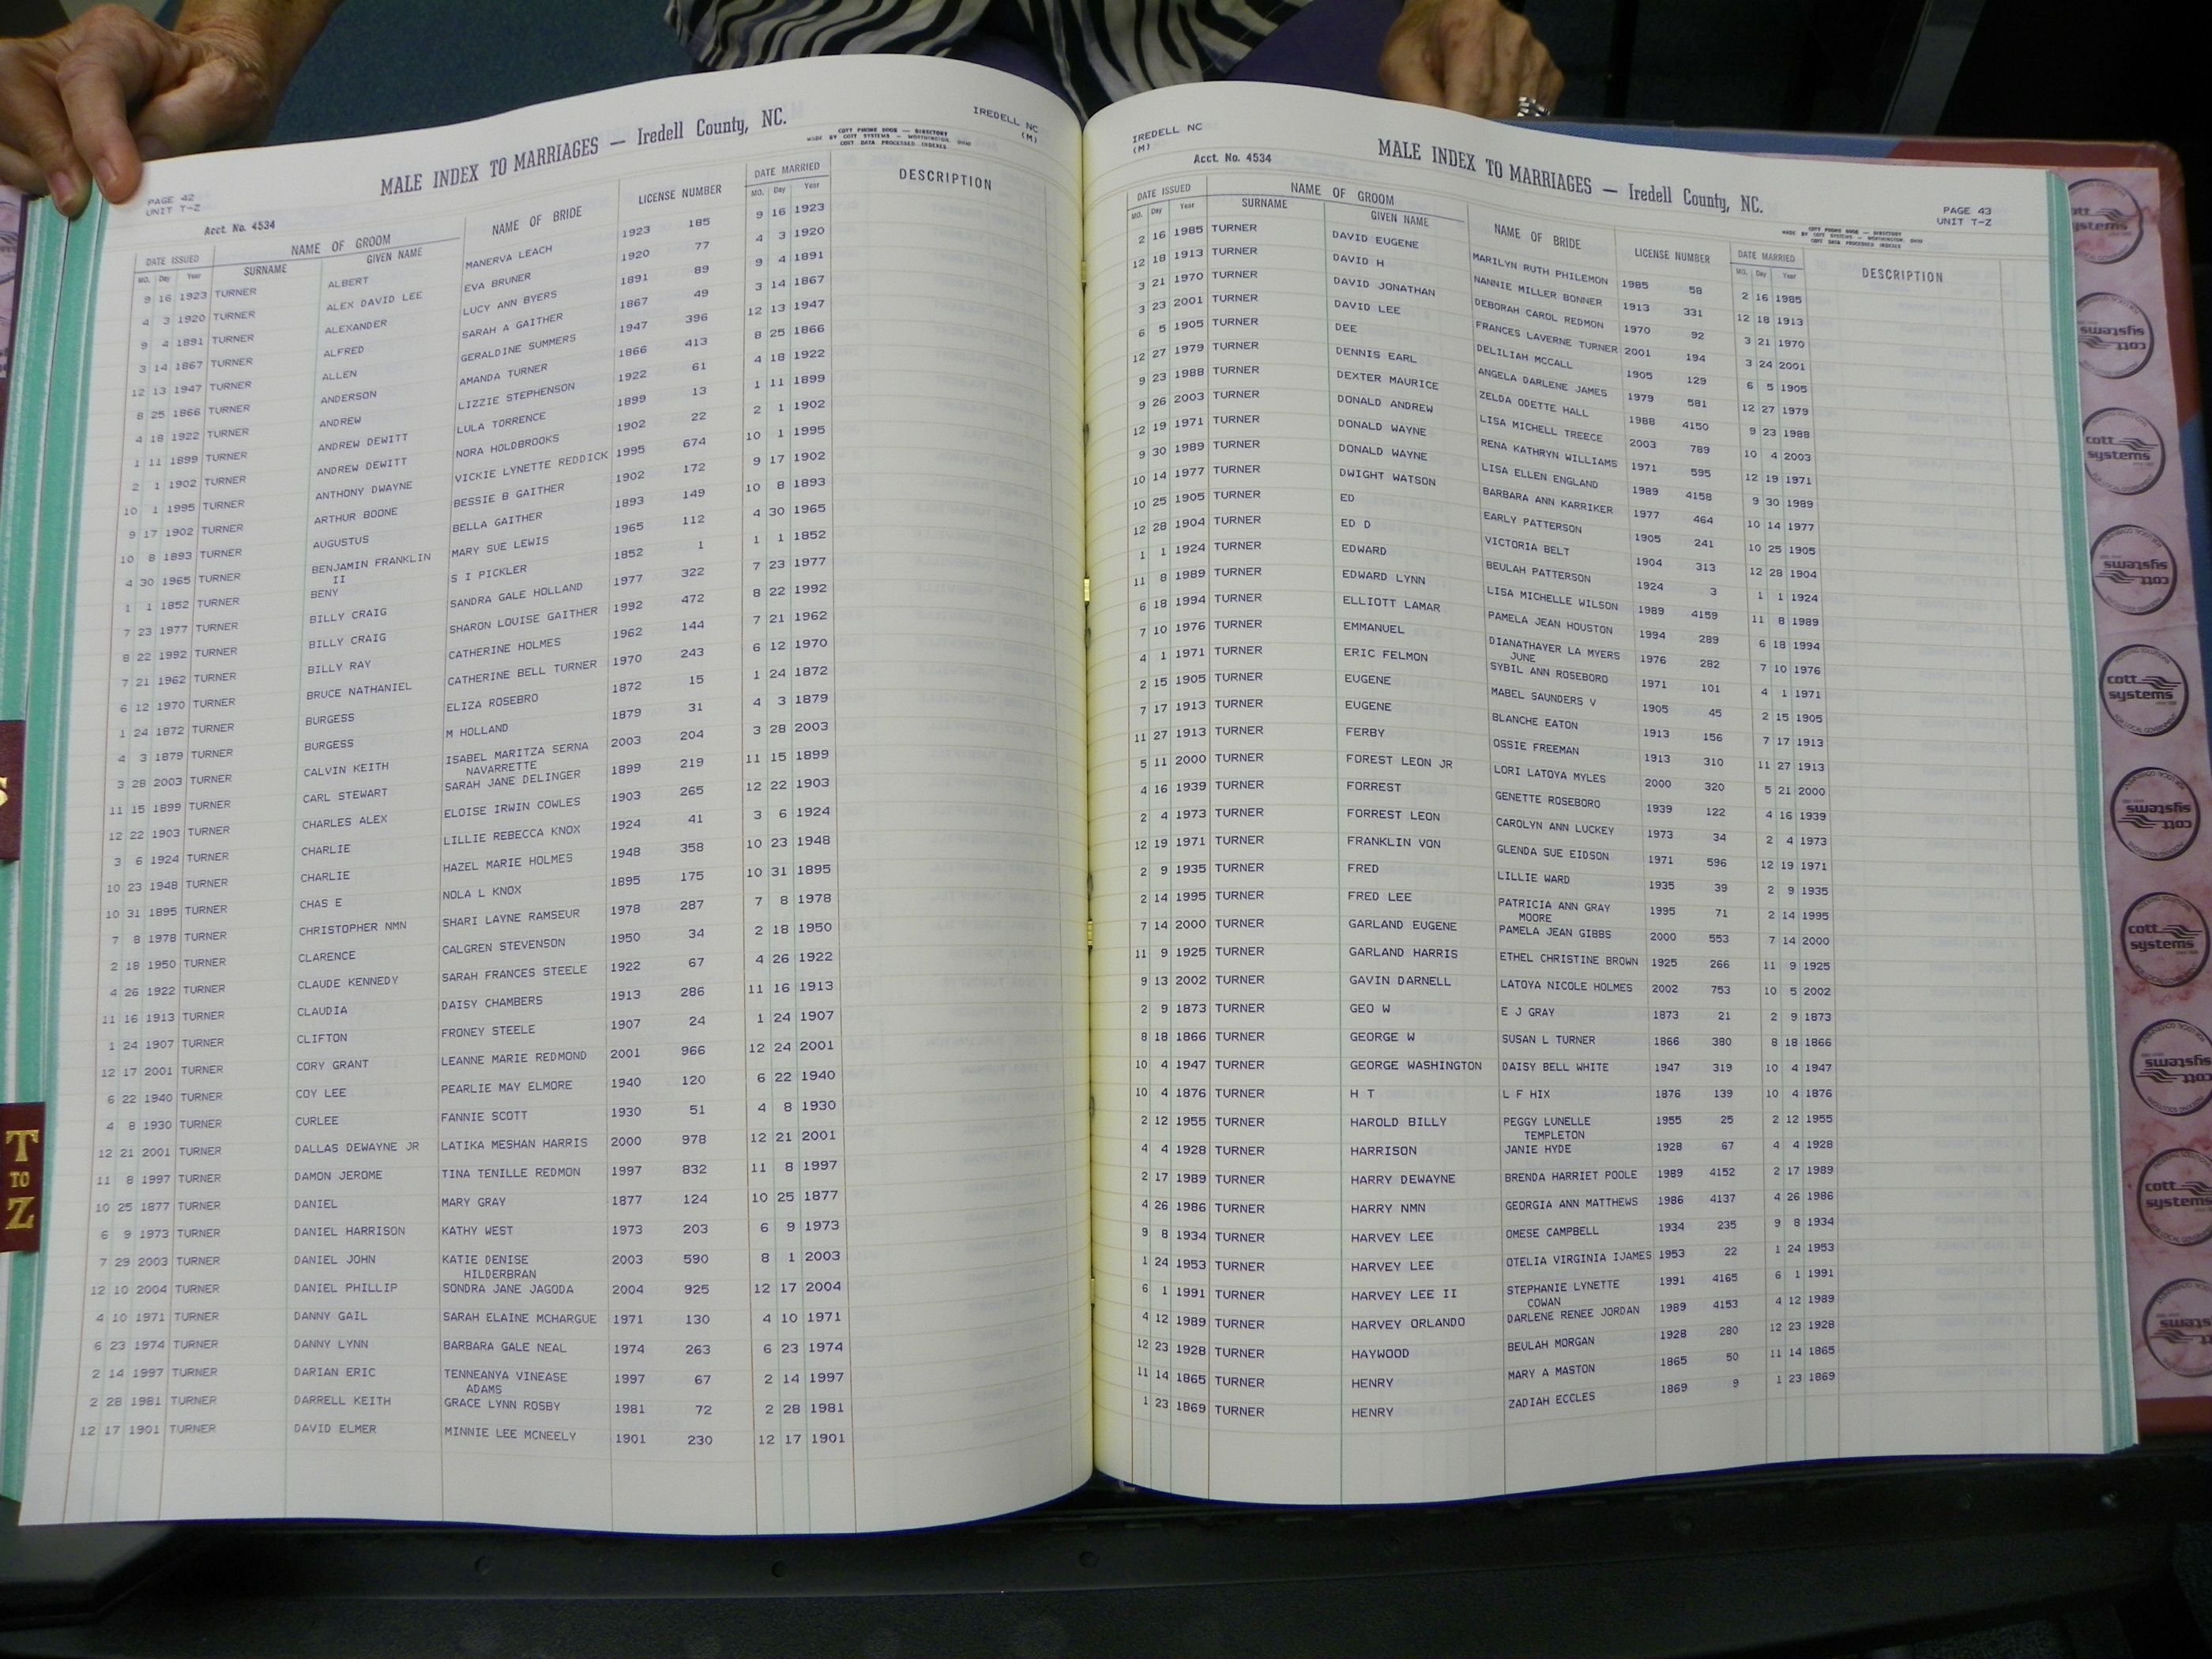 PAGE 42
UNIT T-Z
Acct. No. 4534
MALE INDEX TO MARRIAGES — Iredell County, NC.
COTT PHONE BOOK — DIRECTORY
MADE BY COTT SYSTEMS — WORTHINGTON, OHIO
COTT DATA PROCESSED INDEXES
IREDELL NC
(M)
DATE ISSUED NAME OF GROOM NAME OF BRIDE LICENSE NUMBER DATE MARRIED DESCRIPTION
MO. Day Year SURNAME GIVEN NAME MO. Day Year
9 16 1923 TURNER ALBERT MANERVA LEACH 1923 185 9 16 1923
4 3 1920 TURNER ALEX DAVID LEE EVA BRUNER 1920 77 4 3 1920
9 4 1891 TURNER ALEXANDER LUCY ANN BYERS 1891 89 9 4 1891
3 14 1867 TURNER ALFRED SARAH A GAITHER 1867 49 3 14 1867
12 13 1947 TURNER ALLEN GERALDINE SUMMERS 1947 396 12 13 1947
8 25 1866 TURNER ANDERSON AMANDA TURNER 1866 413 8 25 1866
4 18 1922 TURNER ANDREW LIZZIE STEPHENSON 1922 61 4 18 1922
1 11 1899 TURNER ANDREW DEWITT LULA TORRENCE 1899 13 1 11 1899
2 1 1902 TURNER ANDREW DEWITT NORA HOLDBROOKS 1902 22 2 1 1902
10 1 1995 TURNER ANTHONY DWAYNE VICKIE LYNETTE REDDICK 1995 674 10 1 1995
9 17 1902 TURNER ARTHUR BOONE BESSIE B GAITHER 1902 172 9 17 1902
10 8 1893 TURNER AUGUSTUS BELLA GAITHER 1893 149 10 8 1893
4 30 1965 TURNER BENJAMIN FRANKLIN MARY SUE LEWIS 1965 112 4 30 1965
II
1 1 1852 TURNER BENY S I PICKLER 1852 1 1 1 1852
7 23 1977 TURNER BILLY CRAIG SANDRA GALE HOLLAND 1977 322 7 23 1977
8 22 1992 TURNER BILLY CRAIG SHARON LOUISE GAITHER 1992 472 8 22 1992
7 21 1962 TURNER BILLY RAY CATHERINE HOLMES 1962 144 7 21 1962
6 12 1970 TURNER BRUCE NATHANIEL CATHERINE BELL TURNER 1970 243 6 12 1970
1 24 1872 TURNER BURGESS ELIZA ROSEBRO 1872 15 1 24 1872
4 3 1879 TURNER BURGESS M HOLLAND 1879 31 4 3 1879
3 28 2003 TURNER CALVIN KEITH ISABEL MARITZA SERNA 2003 204 3 28 2003
NAVARRETTE
11 15 1899 TURNER CARL STEWART SARAH JANE DELINGER 1899 219 11 15 1899
12 22 1903 TURNER CHARLES ALEX ELOISE IRWIN COWLES 1903 265 12 22 1903
3 6 1924 TURNER CHARLIE LILLIE REBECCA KNOX 1924 41 3 6 1924
10 23 1948 TURNER CHARLIE HAZEL MARIE HOLMES 1948 358 10 23 1948
10 31 1895 TURNER CHAS E NOLA L KNOX 1895 175 10 31 1895
7 8 1978 TURNER CHRISTOPHER NMN SHARI LAYNE RAMSEUR 1978 287 7 8 1978
2 18 1950 TURNER CLARENCE CALGREN STEVENSON 1950 34 2 18 1950
4 26 1922 TURNER CLAUDE KENNEDY SARAH FRANCES STEELE 1922 67 4 26 1922
11 16 1913 TURNER CLAUDIA DAISY CHAMBERS 1913 286 11 16 1913
1 24 1907 TURNER CLIFTON FRONEY STEELE 1907 24 1 24 1907
12 17 2001 TURNER CORY GRANT LEANNE MARIE REDMOND 2001 966 12 24 2001
6 22 1940 TURNER COY LEE PEARLIE MAY ELMORE 1940 120 6 22 1940
4 8 1930 TURNER CURLEE FANNIE SCOTT 1930 51 4 8 1930
12 21 2001 TURNER DALLAS DEWAYNE JR LATIKA MESHAN HARRIS 2000 978 12 21 2001
11 8 1997 TURNER DAMON JEROME TINA TENILLE REDMON 1997 832 11 8 1997
10 25 1877 TURNER DANIEL MARY GRAY 1877 124 10 25 1877
6 9 1973 TURNER DANIEL HARRISON KATHY WEST 1973 203 6 9 1973
7 29 2003 TURNER DANIEL JOHN KATIE DENISE 2003 590 8 1 2003
HILDERBRAN
12 10 2004 TURNER DANIEL PHILLIP SONDRA JANE JAGODA 2004 925 12 17 2004
4 10 1971 TURNER DANNY GAIL SARAH ELAINE MCHARGUE 1971 130 4 10 1971
6 23 1974 TURNER DANNY LYNN BARBARA GALE NEAL 1974 263 6 23 1974
2 14 1997 TURNER DARIAN ERIC TENNEANYA VINEASE 1997 67 2 14 1997
ADAMS
2 28 1981 TURNER DARRELL KEITH GRACE LYNN ROSBY 1981 72 2 28 1981
12 17 1901 TURNER DAVID ELMER MINNIE LEE MCNEELY 1901 230 12 17 1901
T
TO
Z
IREDELL NC
(M)
Acct. No. 4534
MALE INDEX TO MARRIAGES — Iredell County, NC.
COTT PHONE BOOK — DIRECTORY
MADE BY COTT SYSTEMS — WORTHINGTON, OHIO
COTT DATA PROCESSED INDEXES
PAGE 43
UNIT T-Z
DATE ISSUED NAME OF GROOM NAME OF BRIDE LICENSE NUMBER DATE MARRIED DESCRIPTION
MO. Day Year SURNAME GIVEN NAME MO. Day Year
2 16 1985 TURNER DAVID EUGENE MARILYN RUTH PHILEMON 1985 58 2 16 1985
12 18 1913 TURNER DAVID H NANNIE MILLER BONNER 1913 331 12 18 1913
3 21 1970 TURNER DAVID JONATHAN DEBORAH CAROL REDMON 1970 92 3 21 1970
3 23 2001 TURNER DAVID LEE FRANCES LAVERNE TURNER 2001 194 3 24 2001
6 5 1905 TURNER DEE DELILIAH MCCALL 1905 129 6 5 1905
12 27 1979 TURNER DENNIS EARL ANGELA DARLENE JAMES 1979 581 12 27 1979
9 23 1988 TURNER DEXTER MAURICE ZELDA ODETTE HALL 1988 4150 9 23 1988
9 26 2003 TURNER DONALD ANDREW LISA MICHELL TREECE 2003 789 10 4 2003
12 19 1971 TURNER DONALD WAYNE RENA KATHRYN WILLIAMS 1971 595 12 19 1971
9 30 1989 TURNER DONALD WAYNE LISA ELLEN ENGLAND 1989 4158 9 30 1989
10 14 1977 TURNER DWIGHT WATSON BARBARA ANN KARRIKER 1977 464 10 14 1977
10 25 1905 TURNER ED EARLY PATTERSON 1905 241 10 25 1905
12 28 1904 TURNER ED D VICTORIA BELT 1904 313 12 28 1904
1 1 1924 TURNER EDWARD BEULAH PATTERSON 1924 3 1 1 1924
11 8 1989 TURNER EDWARD LYNN LISA MICHELLE WILSON 1989 4159 11 8 1989
6 18 1994 TURNER ELLIOTT LAMAR PAMELA JEAN HOUSTON 1994 289 6 18 1994
7 10 1976 TURNER EMMANUEL DIANATHAYER LA MYERS 1976 282 7 10 1976
JUNE
4 1 1971 TURNER ERIC FELMON SYBIL ANN ROSEBORO 1971 101 4 1 1971
2 15 1905 TURNER EUGENE MABEL SAUNDERS V 1905 45 2 15 1905
7 17 1913 TURNER EUGENE BLANCHE EATON 1913 156 7 17 1913
11 27 1913 TURNER FERBY OSSIE FREEMAN 1913 310 11 27 1913
5 11 2000 TURNER FOREST LEON JR LORI LATOYA MYLES 2000 320 5 21 2000
4 16 1939 TURNER FORREST GENETTE ROSEBORO 1939 122 4 16 1939
2 4 1973 TURNER FORREST LEON CAROLYN ANN LUCKEY 1973 34 2 4 1973
12 19 1971 TURNER FRANKLIN VON GLENDA SUE EIDSON 1971 596 12 19 1971
2 9 1935 TURNER FRED LILLIE WARD 1935 39 2 9 1935
2 14 1995 TURNER FRED LEE PATRICIA ANN GRAY 1995 71 2 14 1995
MOORE
7 14 2000 TURNER GARLAND EUGENE PAMELA JEAN GIBBS 2000 553 7 14 2000
11 9 1925 TURNER GARLAND HARRIS ETHEL CHRISTINE BROWN 1925 266 11 9 1925
9 13 2002 TURNER GAVIN DARNELL LATOYA NICOLE HOLMES 2002 753 10 5 2002
2 9 1873 TURNER GEO W E J GRAY 1873 21 2 9 1873
8 18 1866 TURNER GEORGE W SUSAN L TURNER 1866 380 8 18 1866
10 4 1947 TURNER GEORGE WASHINGTON DAISY BELL WHITE 1947 319 10 4 1947
10 4 1876 TURNER H T L F HIX 1876 139 10 4 1876
2 12 1955 TURNER HAROLD BILLY PEGGY LUNELLE 1955 25 2 12 1955
TEMPLETON
4 4 1928 TURNER HARRISON JANIE HYDE 1928 67 4 4 1928
2 17 1989 TURNER HARRY DEWAYNE BRENDA HARRIET POOLE 1989 4152 2 17 1989
4 26 1986 TURNER HARRY NMN GEORGIA ANN MATTHEWS 1986 4137 4 26 1986
9 8 1934 TURNER HARVEY LEE OMESE CAMPBELL 1934 235 9 8 1934
1 24 1953 TURNER HARVEY LEE OTELIA VIRGINIA IJAMES 1953 22 1 24 1953
6 1 1991 TURNER HARVEY LEE II STEPHANIE LYNETTE 1991 4165 6 1 1991
COWAN
4 12 1989 TURNER HARVEY ORLANDO DARLENE RENEE JORDAN 1989 4153 4 12 1989
12 23 1928 TURNER HAYWOOD BEULAH MORGAN 1928 280 12 23 1928
11 14 1865 TURNER HENRY MARY A MASTON 1865 50 11 14 1865
1 23 1869 TURNER HENRY ZADIAH ECCLES 1869 9 1 23 1869
cott
systems
cott
systems
cott
systems
cott
systems
cott
systems
cott
systems
cott
systems
cott
systems
cott
systems